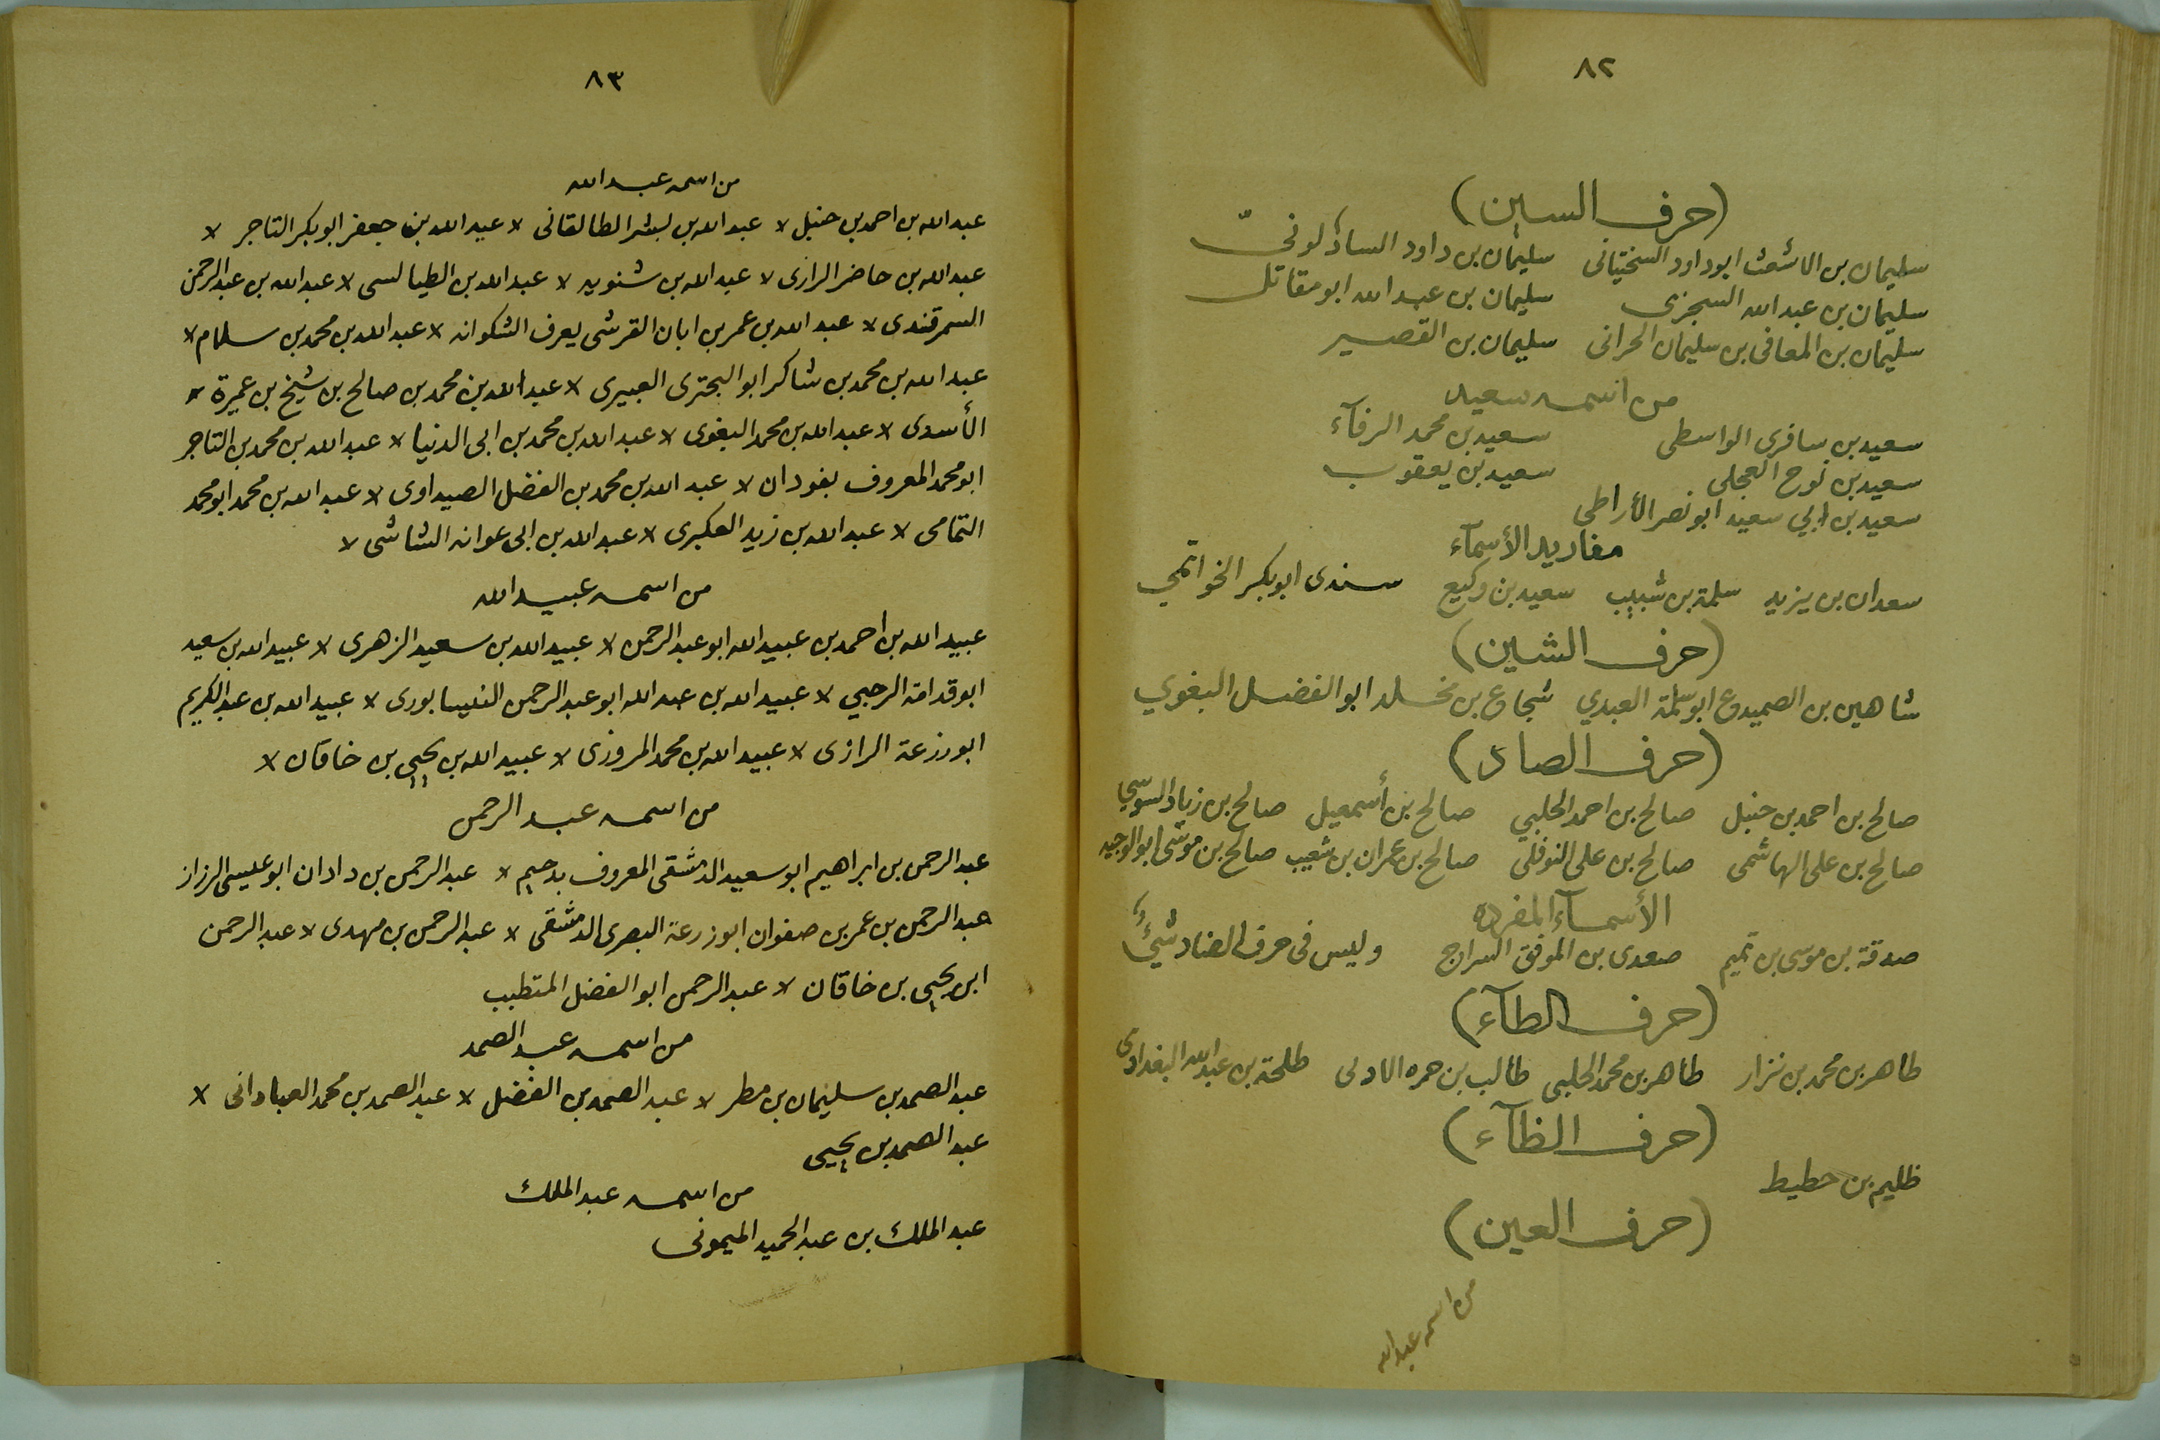 ٨٢
(حرف السين)
سليمان بن الاشعث ابوداود السختيانى سليمان بن داود الشاذكونى
سليمان بن عبدالله السجزى سليمان بن عبدالله ابومقاتل
سليمان بن المعافى بن سليمان الحرانى سليمان بن القصير
من اسمه سعيد
سعيد بن سافرى الواسطى سعيد بن محمد الرفآء
سعيد بن نوح العجلى سعيد بن يعقوب
سعيد بن ابي سعيد ابونصر الأراطى
مفاريد الأسمآء
سعدان بن يزيد سلمة بن شبيب سعيد بن وكيع سندى ابوبكر الخواتمي
(حرف الشين)
شاهين بن الصميدع ابوسلمة العبدي شجاع بن مخلد ابوالفضل البغوي
(حرف الصاد)
صالح بن احمد بن حنبل صالح بن احمد الحلبي صالح بن أسمعيل صالح بن زياد السوسي
صالح بن على الهاشمى صالح بن على النوفلى صالح بن عمران بن شعيب صالح بن موسى ابوالوجيه
الأسمآء المفرده
صدقة بن موسى بن تميم صعدى بن الموفق السراج وليس فى حرف الضاد شيئٌ
(حرف الطآء)
طاهر بن محمد بن نزار طاهر بن محمد الحلبى طالب بن حمره الادنى طلحة بن عبدالله البغدادى
(حرف الظآء)
ظليم بن حطيط
(حرف العين)
من اسمه عبدالله
٨٣
من اسمه عبدالله
عبدالله بن احمد بن حنبل × عبدالله بن بشر الطالقانى × عبدالله بن جعفر ابوبكر التاجر ×
عبدالله بن حاضر الرازى × عبدالله بن شنويه × عبدالله بن الطيالسى × عبدالله بن عبدالرحمن
السمرقندى × عبدالله بن عمر بن ابان القرشى يعرف الشكوانه × عبدالله بن محمد بن سلام ×
عبدالله بن محمد بن شاكر ابوالبحترى العبيرى × عبدالله بن محمد بن صالح بن شيخ بن عميرة ×
الأسدى × عبدالله بن محمد البغوى × عبدالله بن محمد بن ابى الدنيا × عبدالله بن محمد بن التاجر
ابومحمد المعروف بفودان × عبدالله بن محمد بن الفضل الصيداوى × عبدالله بن محمد ابومحمد
التمامى × عبدالله بن زيد العكبرى × عبدالله بن ابى عوانه الشاشى ×
من اسمه عبيدالله
عبيدالله بن احمد بن عبيدالله ابوعبدالرحمن × عبيدالله بن سعيد الزهرى × عبيدالله بن سعيد
ابوقدامة الرحبي × عبيدالله بن عبدالله ابوعبدالرحمن النيسابورى × عبيدالله بن عبدالكريم
ابوزرعة الرازى × عبيدالله بن محمد المروزى × عبيدالله بن يحيى بن خاقان ×
من اسمه عبدالرحمن
عبدالرحمن بن ابراهيم ابوسعيد الدمشقى المعروف بدحيم × عبدالرحمن بن دادان ابوعيسى الرزاز
عبدالرحمن بن عمر بن صفوان ابوزرعة البصرى الدمشقى × عبدالرحمن بن مهدى × عبدالرحمن
ابن يحيى بن خاقان × عبدالرحمن ابوالفضل المتطبب
من اسمه عبدالصمد
عبدالصمد بن سليمان بن مطر × عبدالصمد بن الفضل × عبدالصمد بن محمد العبادانى ×
عبدالصمد بن يحيى
من اسمه عبدالملك
عبدالملك بن عبدالحميد الميمونى